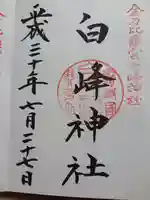 白峰神社
平成三十年七月二十七日